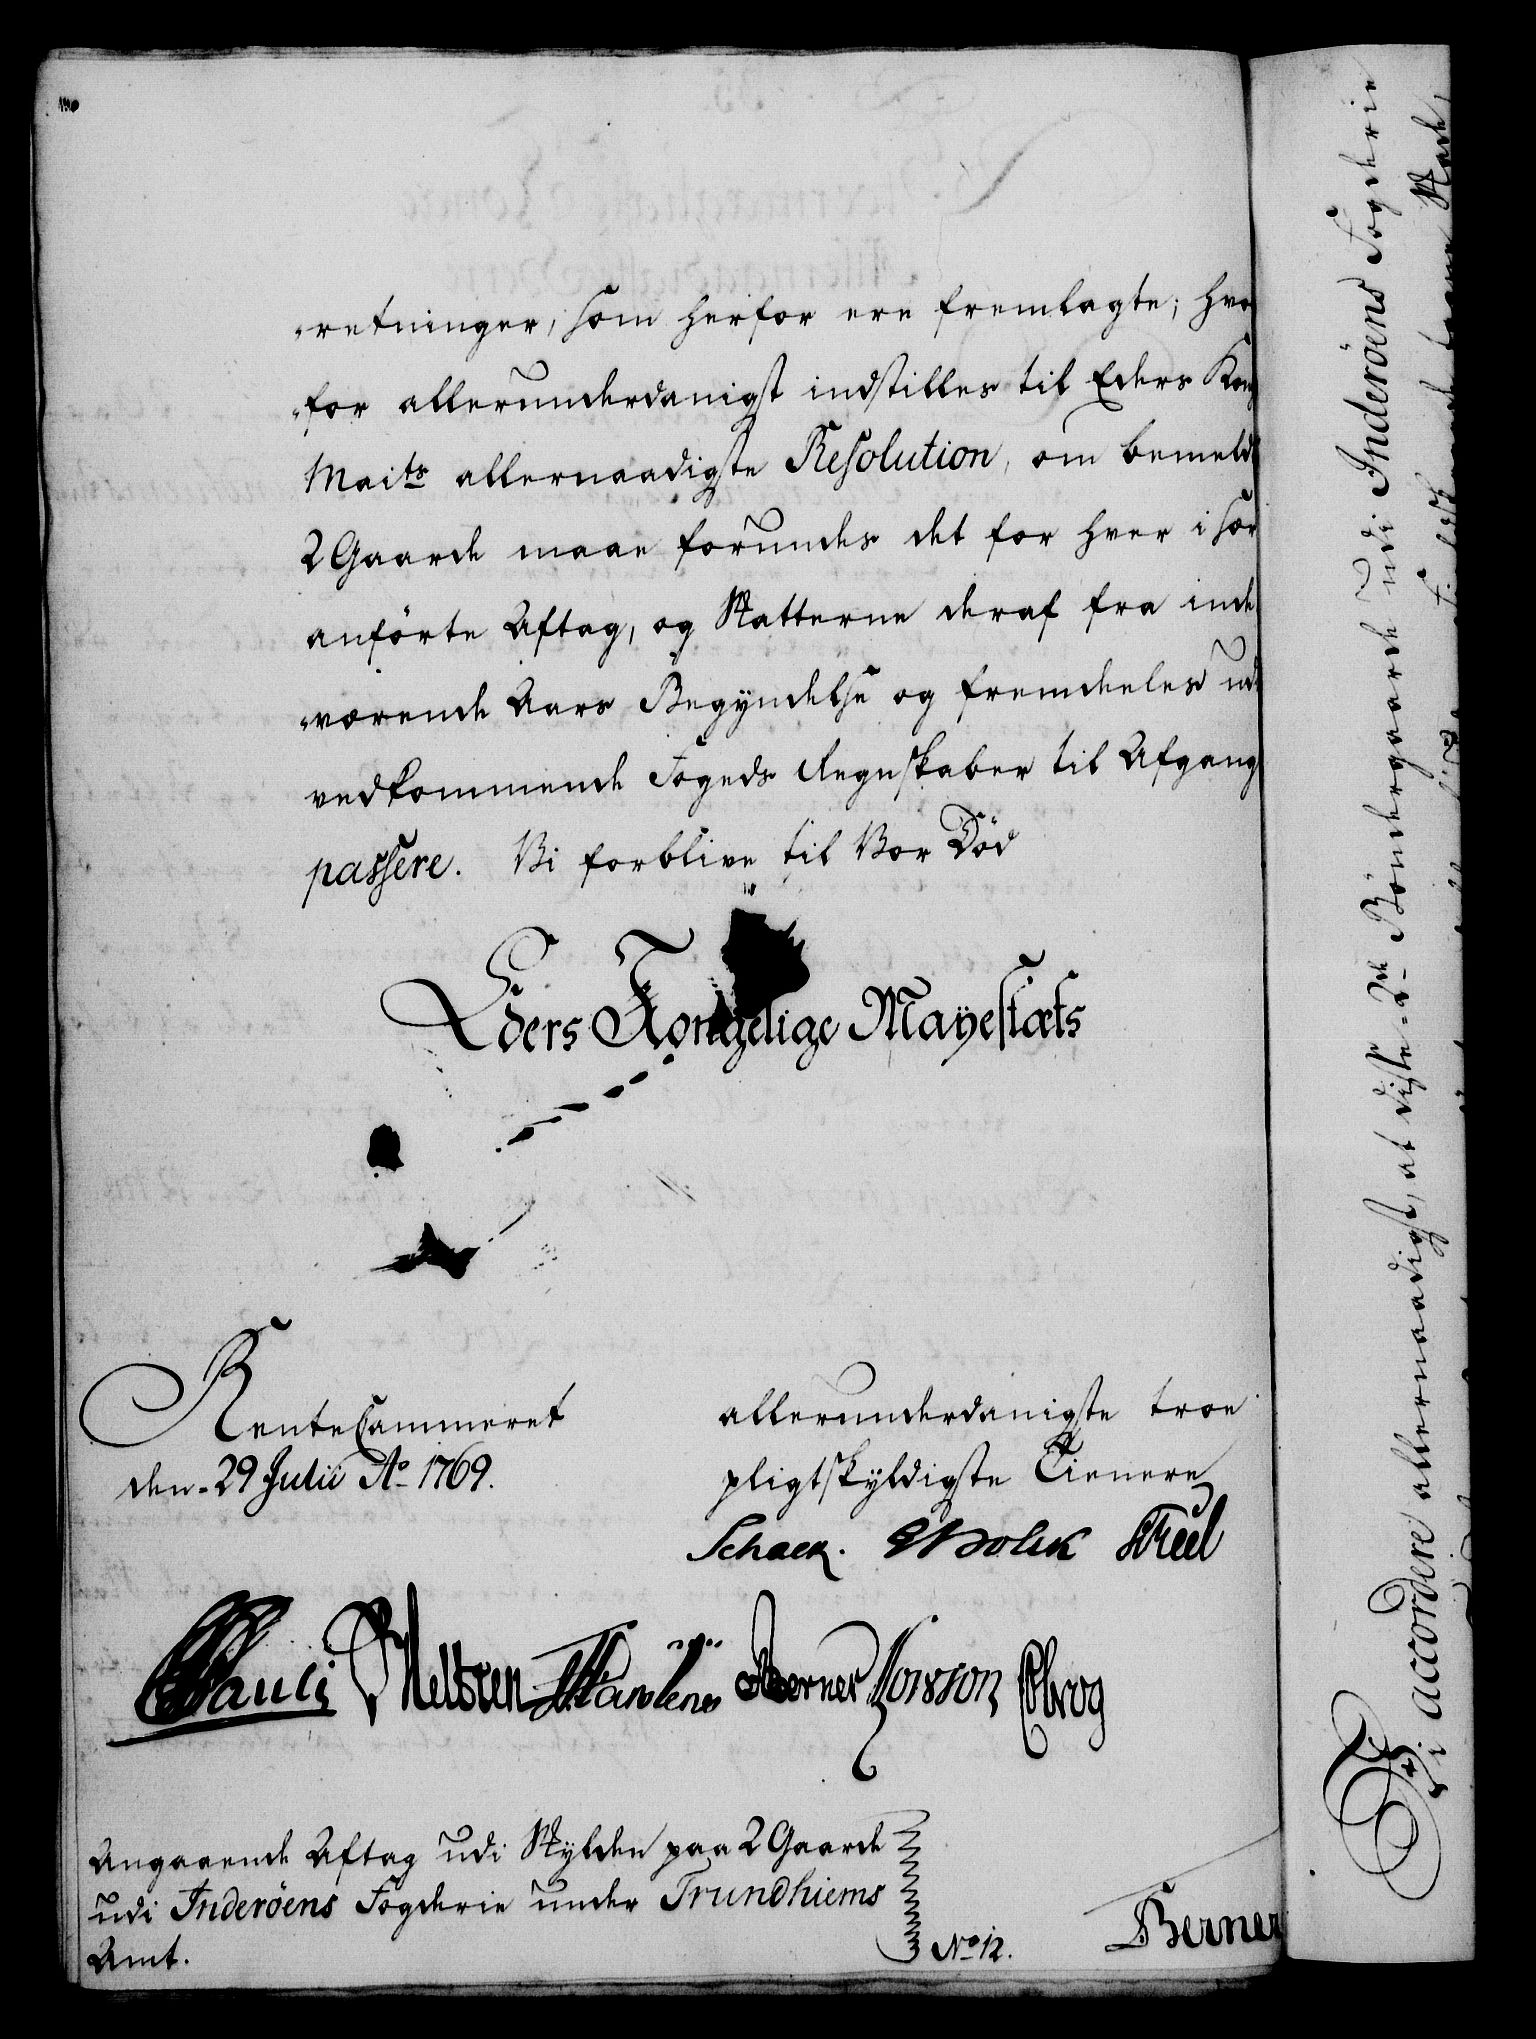 -retninger, som herfor ere fremlagte; hvor
-for allerunderdanigst indstilles til Eders Kong
Maits allernaadigste Resolution, om bemeldte
2 Gaarde maae forundes det for hver i sær
anførte Aftag, og Skatterne deraf fra inde
-værende Aars Begÿndelse og fremdeeles udi
vedkommende Fogeds Regnskaber til Afgang
passere. Vi forblive til Vor Død
Eders Kongelige Mayestæts
RenteCammeret
den 29 Julii Ao 1769.
allerunderdanigste troe
pligtskÿldigste Tienere
Schack.
Pauli Berner Elbrog
Angaaende Aftag udi Skÿlden paa 2 Gaarde
udi Inderöens Fogderie under Trundhiems
Amt.
No 12.
Berner
Vi accordere allernaadigst, at disse 2de Böndergaarde udi Inderöens Fogderie